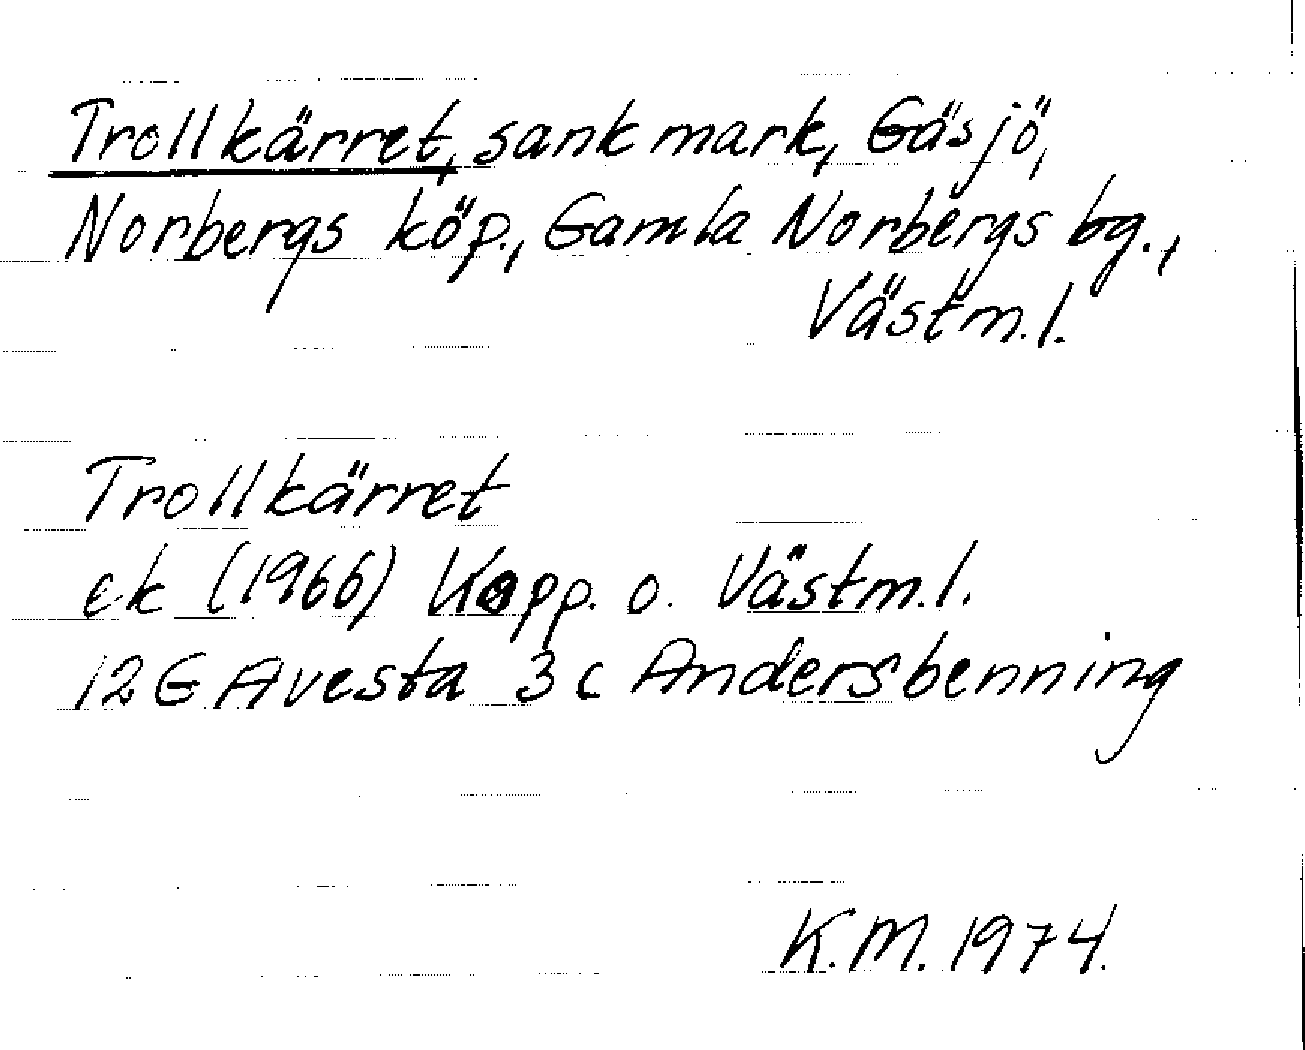 Trollkärret, sank mark, Gäsjö,
Norbergs köp., Gamla Norbergs bg.,
Västm.l.
Trollkärret
ek (1966) Kopp. o. Västm.l.
12G Avesta 3c Andersbenning
K.M. 1974.